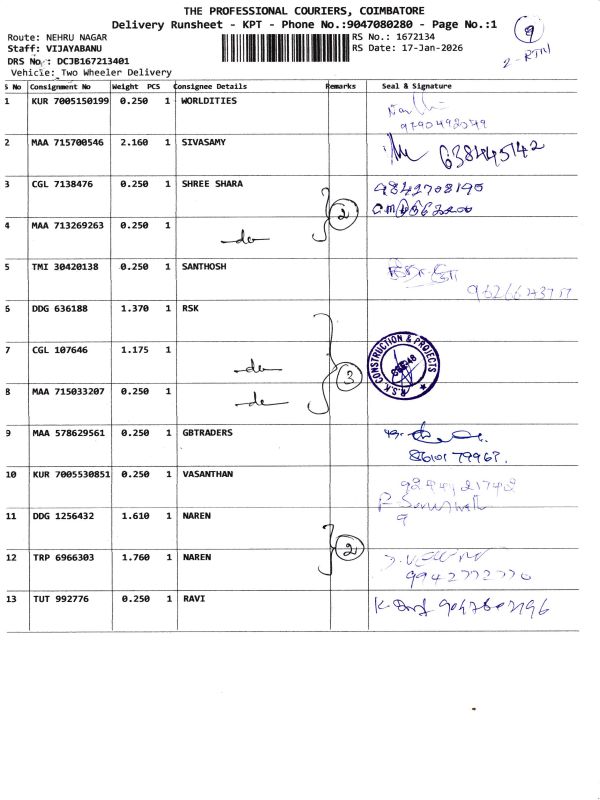 THE PROFESSIONAL COURIERS, COIMBATORE
Delivery Runsheet - KPT - Phone No.:9047080280 - Page No.:1
9
2-RTN
Route: NEHRU NAGAR
RS No.: 1672134
Staff: VIJAYABANU
RS Date: 17-Jan-2026
DRS No.: DCJB167213401
Vehicle: Two Wheeler Delivery
S No Consignment No Weight PCS Consignee Details Remarks Seal & Signature
1 KUR 7005150199 0.250 1 WORLDITIES
2 MAA 715700546 2.160 1 SIVASAMY
3 CGL 7138476 0.250 1 SHREE SHARA
2
4 MAA 713269263 0.250 1
-do-
5 TMI 30420138 0.250 1 SANTHOSH
6 DDG 636188 1.370 1 RSK
7 CGL 107646 1.175 1
-do-
3
R.S.K. CONSTRUCTION & PROJECTS
8 MAA 715033207 0.250 1
-do-
9 MAA 578629561 0.250 1 GBTRADERS
10 KUR 7005530851 0.250 1 VASANTHAN
11 DDG 1256432 1.610 1 NAREN
2
12 TRP 6966303 1.760 1 NAREN
9942772770
13 TUT 992776 0.250 1 RAVI